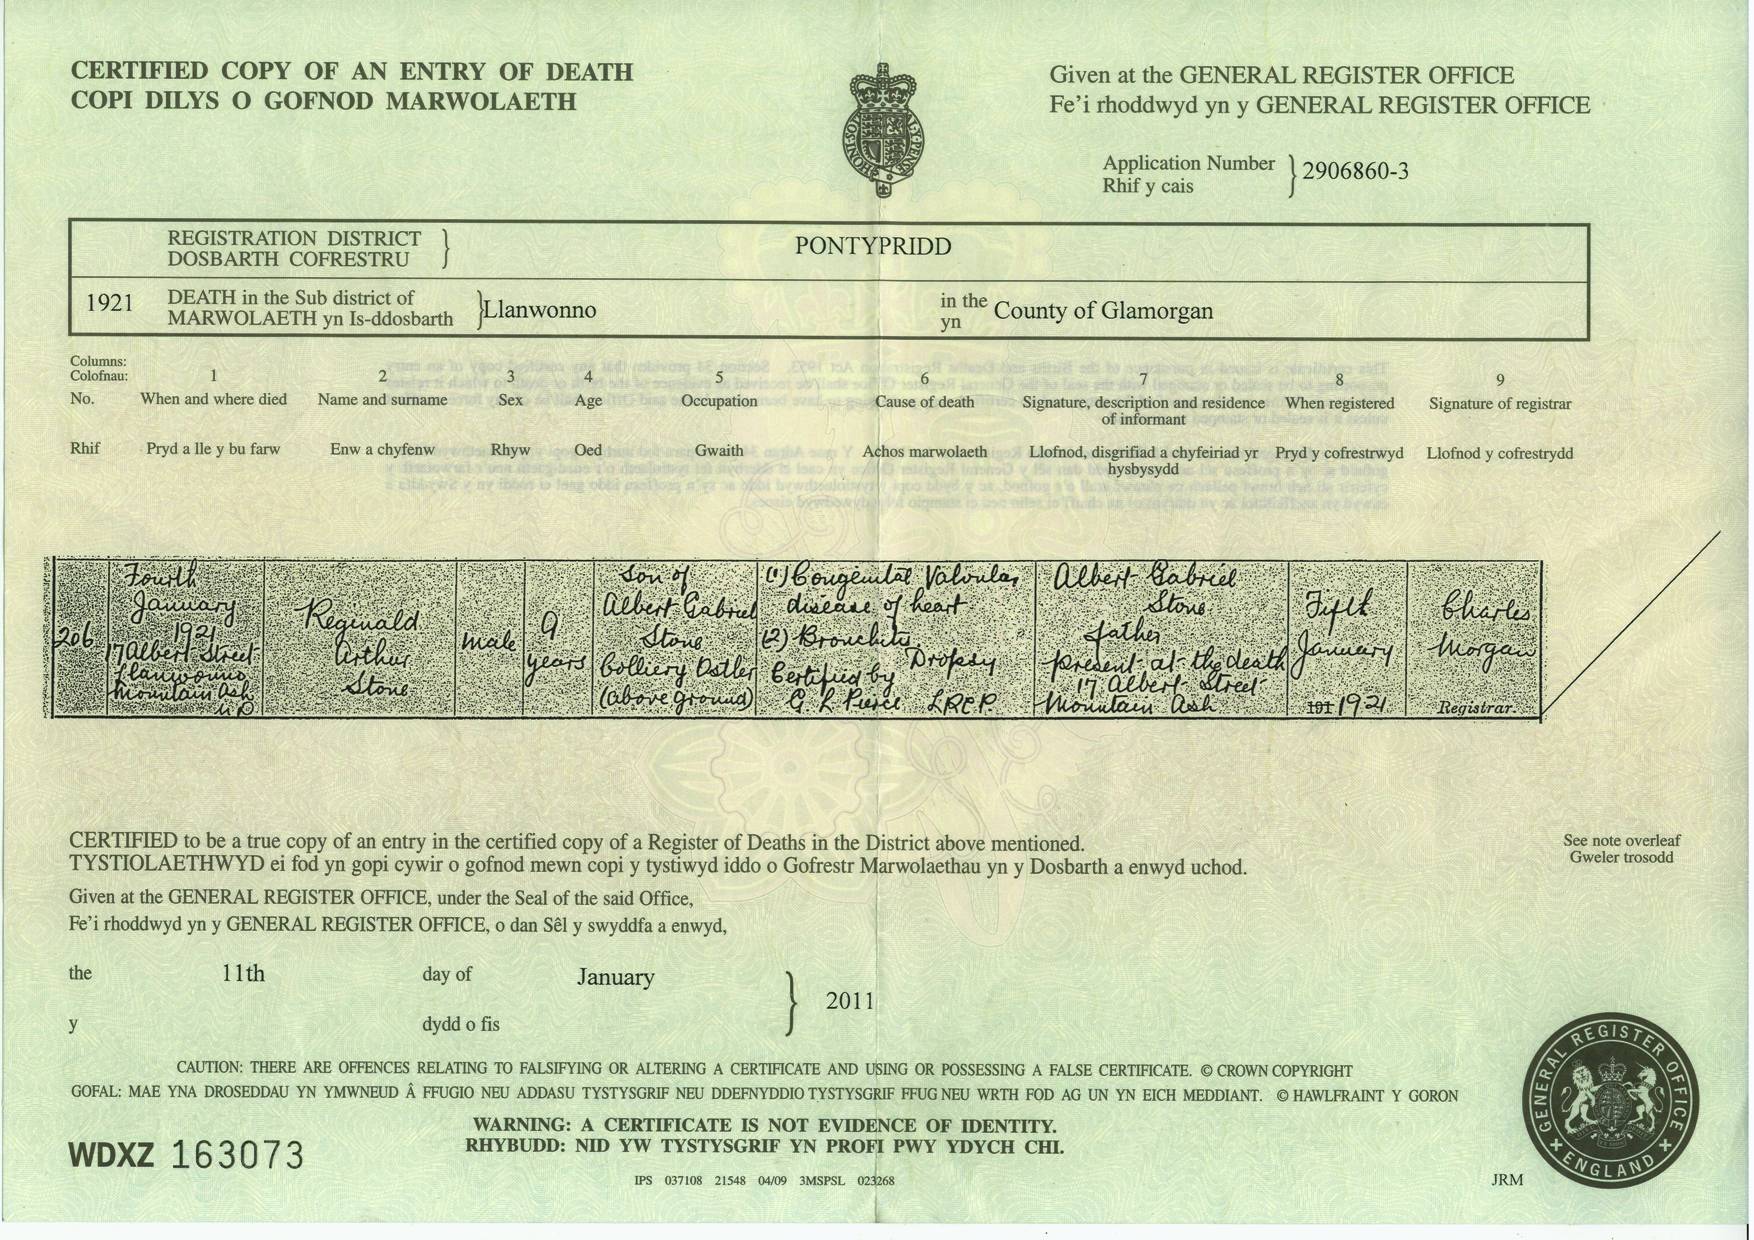 CERTIFIED COPY OF AN ENTRY OF DEATH
COPI DILYS O GOFNOD MARWOLAETH
HONI SOIT QUI MAL Y PENSE
Given at the GENERAL REGISTER OFFICE
Fe'i rhoddwyd yn y GENERAL REGISTER OFFICE
Application Number
Rhif y cais
2906860-3
REGISTRATION DISTRICT
DOSBARTH COFRESTRU
PONTYPRIDD
1921
DEATH in the Sub district of
MARWOLAETH yn Is-ddosbarth
Llanwonno
in the
yn
County of Glamorgan
Columns:
Colofnau: 1 2 3 4 5 6 7 8 9
No. When and where died Name and surname Sex Age Occupation Cause of death Signature, description and residence When registered Signature of registrar
of informant
Rhif Pryd a lle y bu farw Enw a chyfenw Rhyw Oed Gwaith Achos marwolaeth Llofnod, disgrifiad a chyfeiriad yr Pryd y cofrestrwyd Llofnod y cofrestrydd
hysbysydd
206
Fourth
January
1921
17 Albert Street
Llanwonno
Mountain Ash
UD
Reginald
Arthur
Stone
Male
9
years
Son of
Albert Gabriel
Stone
Colliery Ostler
(above ground)
(1) Congenital Valvular
disease of heart
(2) Bronchitis
Dropsy
Certified by
G L Pierce LRCP
Albert Gabriel
Stone
father
present at the death
17 Albert Street
Mountain Ash
Fifth
January
191 1921
Charles
Morgan
Registrar.
CERTIFIED to be a true copy of an entry in the certified copy of a Register of Deaths in the District above mentioned.
TYSTIOLAETHWYD ei fod yn gopi cywir o gofnod mewn copi y tystiwyd iddo o Gofrestr Marwolaethau yn y Dosbarth a enwyd uchod.
See note overleaf
Gweler trosodd
Given at the GENERAL REGISTER OFFICE, under the Seal of the said Office,
Fe'i rhoddwyd yn y GENERAL REGISTER OFFICE, o dan Sêl y swyddfa a enwyd,
the 11th day of January
2011
y dydd o fis
CAUTION: THERE ARE OFFENCES RELATING TO FALSIFYING OR ALTERING A CERTIFICATE AND USING OR POSSESSING A FALSE CERTIFICATE. © CROWN COPYRIGHT
GOFAL: MAE YNA DROSEDDAU YN YMWNEUD Â FFUGIO NEU ADDASU TYSTYSGRIF NEU DDEFNYDDIO TYSTYSGRIF FFUG NEU WRTH FOD AG UN YN EICH MEDDIANT. © HAWLFRAINT Y GORON
WARNING: A CERTIFICATE IS NOT EVIDENCE OF IDENTITY.
RHYBUDD: NID YW TYSTYSGRIF YN PROFI PWY YDYCH CHI.
WDXZ 163073
IPS 037108 21548 04/09 3MSPSL 023268
JRM
GENERAL REGISTER OFFICE
ENGLAND